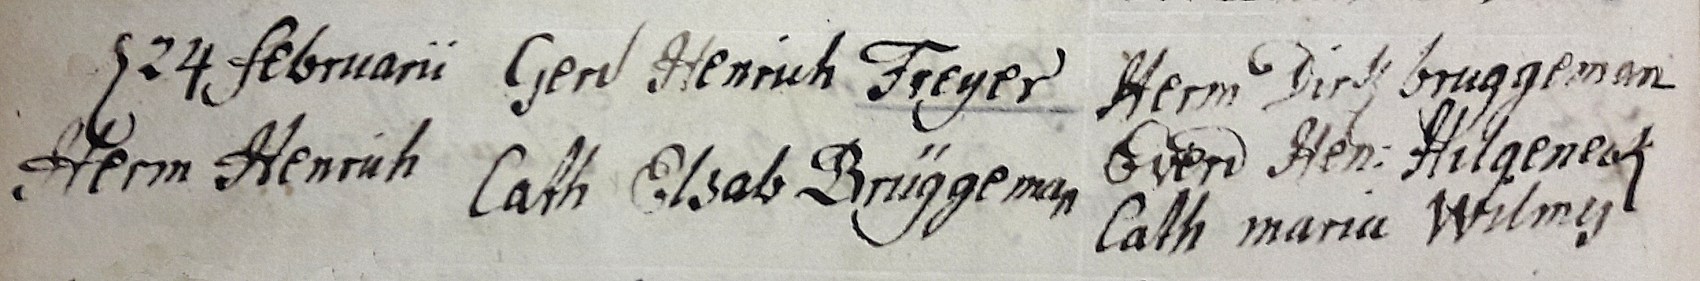 24 februarii
Herm Henrich
Gerd Henrich Freyer
Cath Elsab Brüggeman
Herm Dirk bruggeman
Everd Hen: Hilgeneck
Cath maria Wilmy